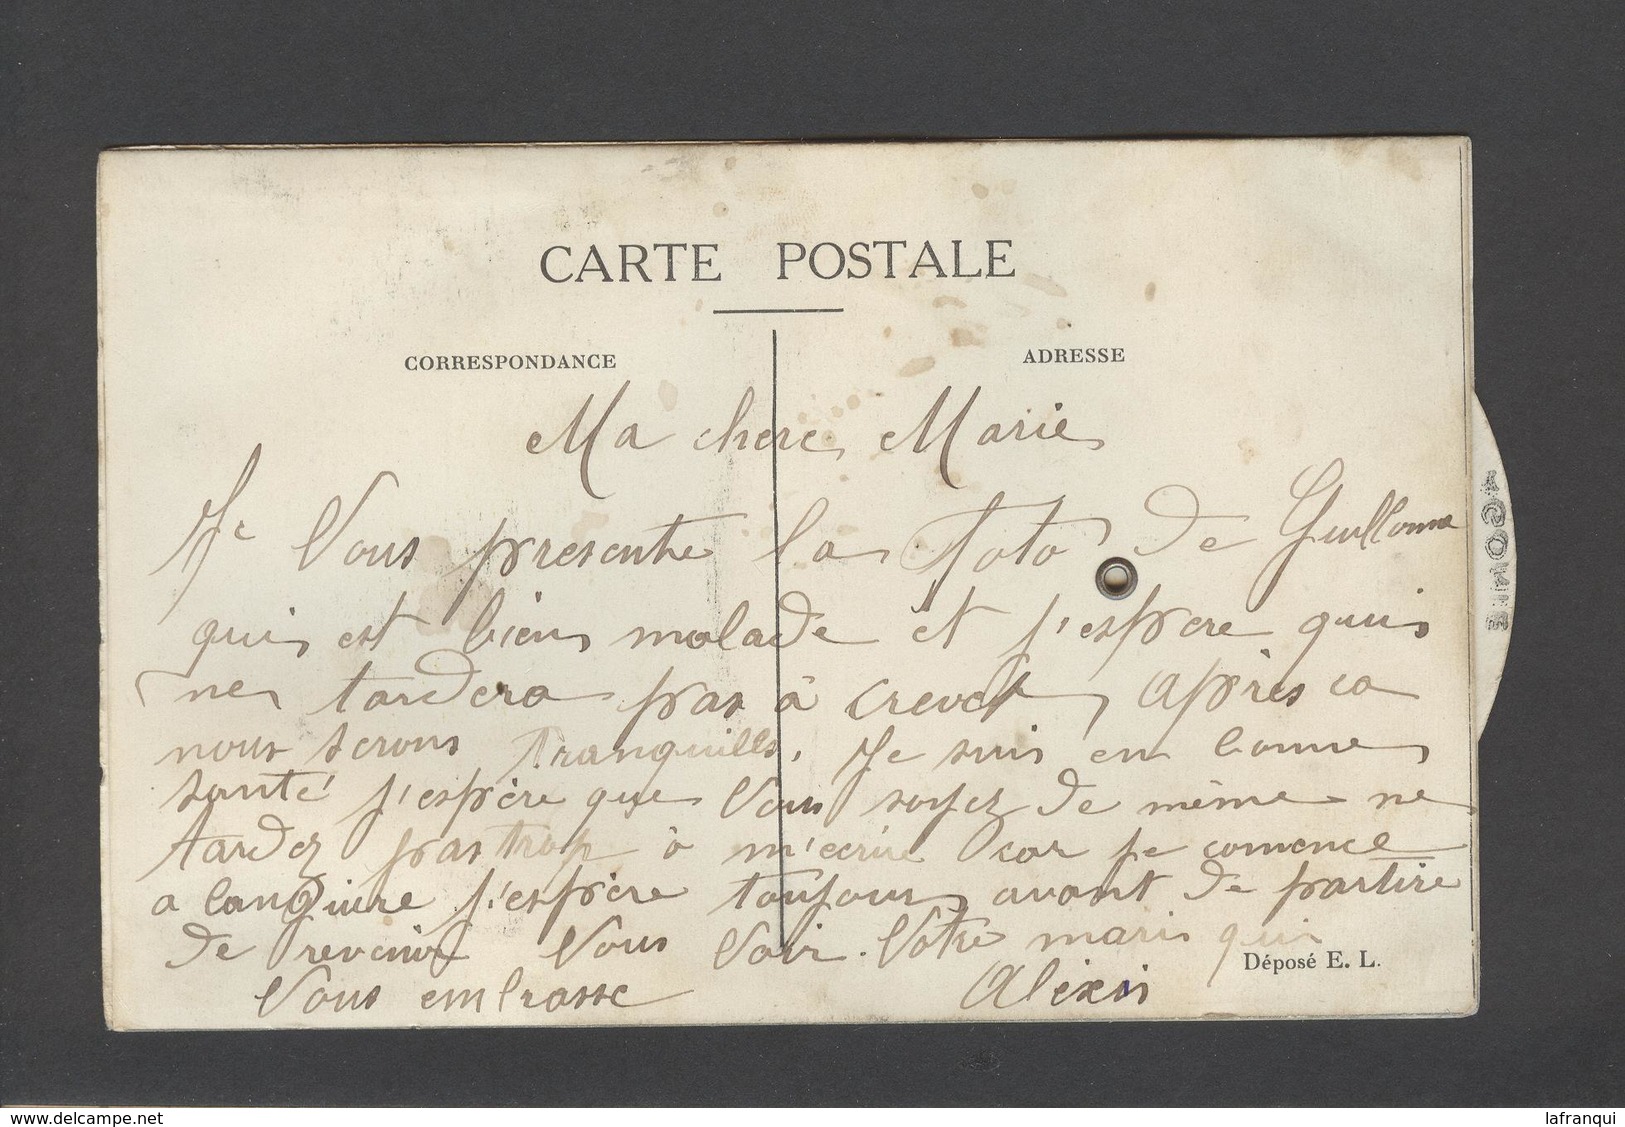 CARTE POSTALE
CORRESPONDANCE
ADRESSE
Ma chere Marie
Je Vous presente la foto de Guillaume
qui est bien malade et j'espere qui
ne tardera pas à crever, après ca
nous serons tranquills, Je suis en bonne
santé j'espère que Vous soyez de même ne
tardez pas trop à m'ecrire car je comence
a languire j'espère toujours avant de partire
de revenir Vous Voir. Votre mari qui
Vous embrasse Alexis
Déposé E. L.
delcampe.net
lafranqui